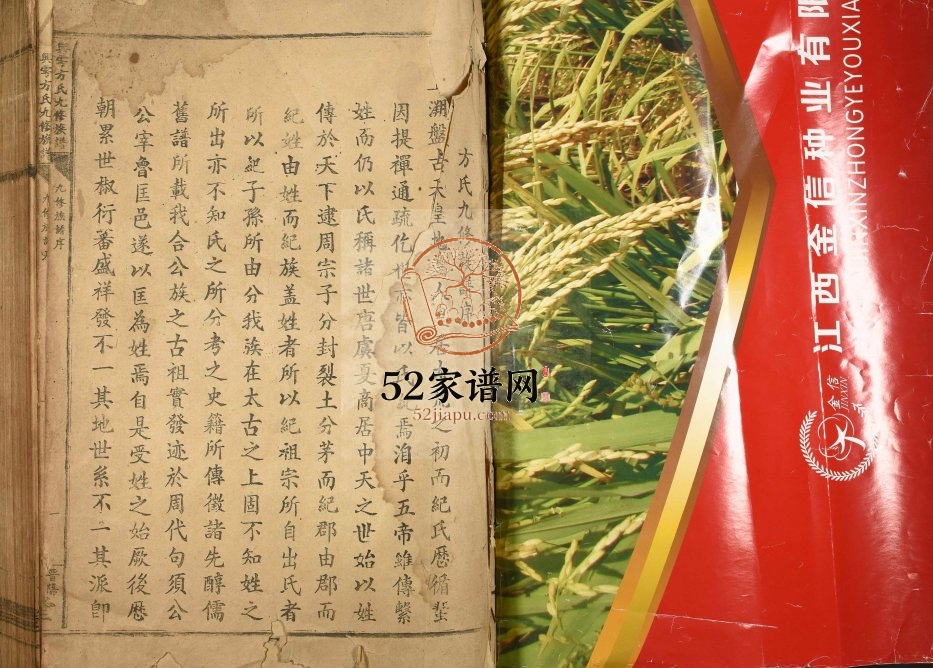 方氏九修族譜序
溯盤古天皇地人之初而紀氏歷循蜚
因提禪通疏仡皆以焉洎乎五帝雖傳繫
姓而仍以氏稱諸世唐虞夏商居中天之世始以姓
傳於天下逮周宗子分封裂土分茅而紀郡由郡而
紀姓由姓而紀族蓋姓者所以紀祖宗所自出氏者
所以紀子孫所由分我族在太古之上固不知姓之
所出亦不知氏之所分考之史籍所傳徵諸先醇儒
舊譜所載我合公族之古祖實發迹於周代句須公
公宰魯匡邑遂以匡為姓焉自是受姓之始厥後歷
朝累世椒衍蕃盛祥發不一其地世系不二其派卽
方氏九修族譜
九修族譜序
一
方氏九修族
江西金信种业有限
JIANGXIJINXINZHONGYEYOUXIA
金信
JINXIN
52家谱网
52jiapu.com